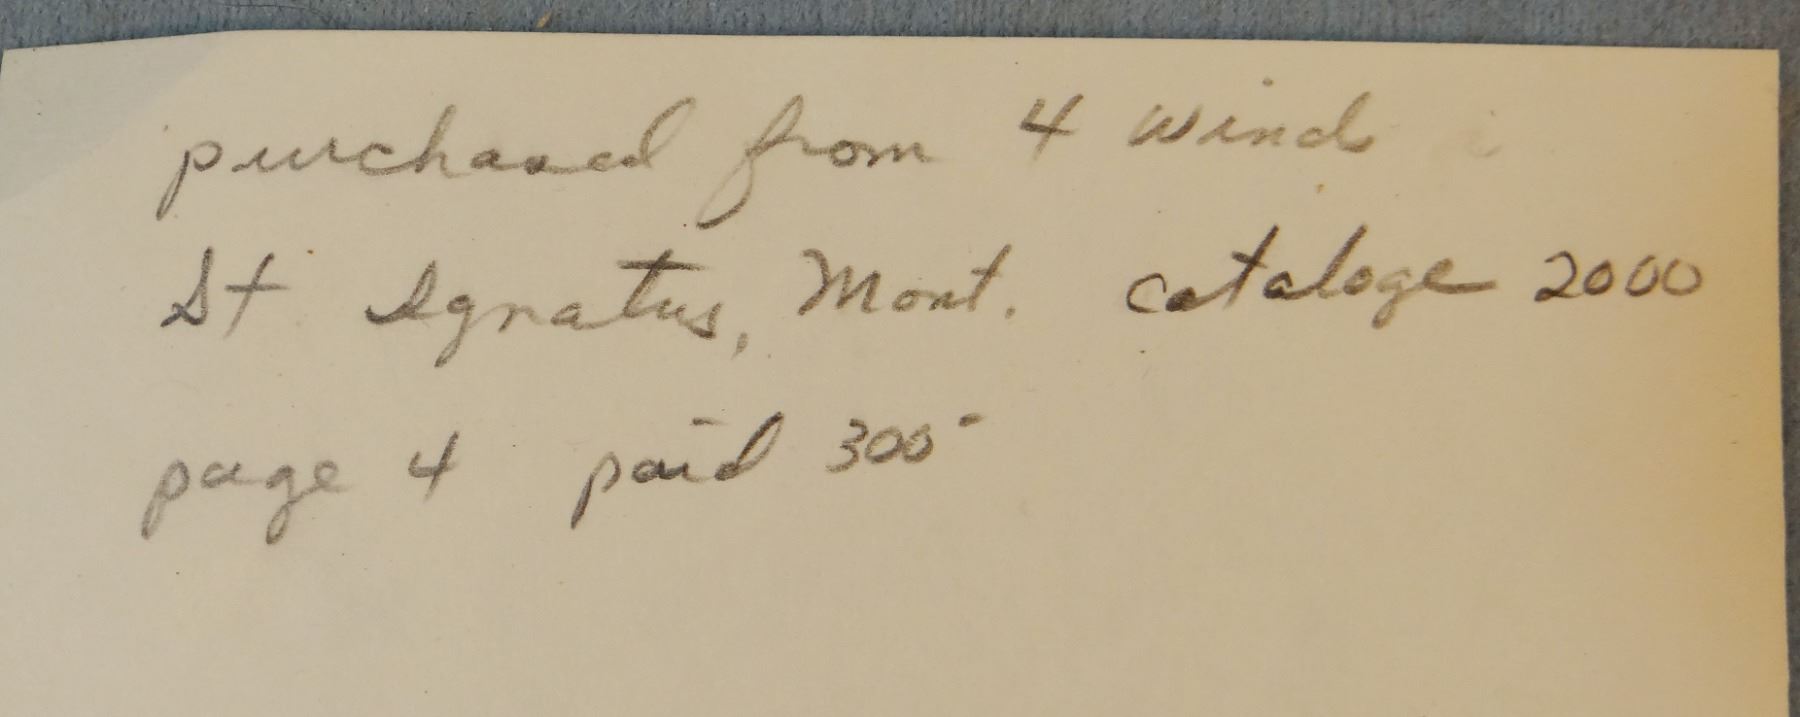 purchased from 4 Winds
St Ignatus, Mont. cataloge 2000
page 4 paid 300-